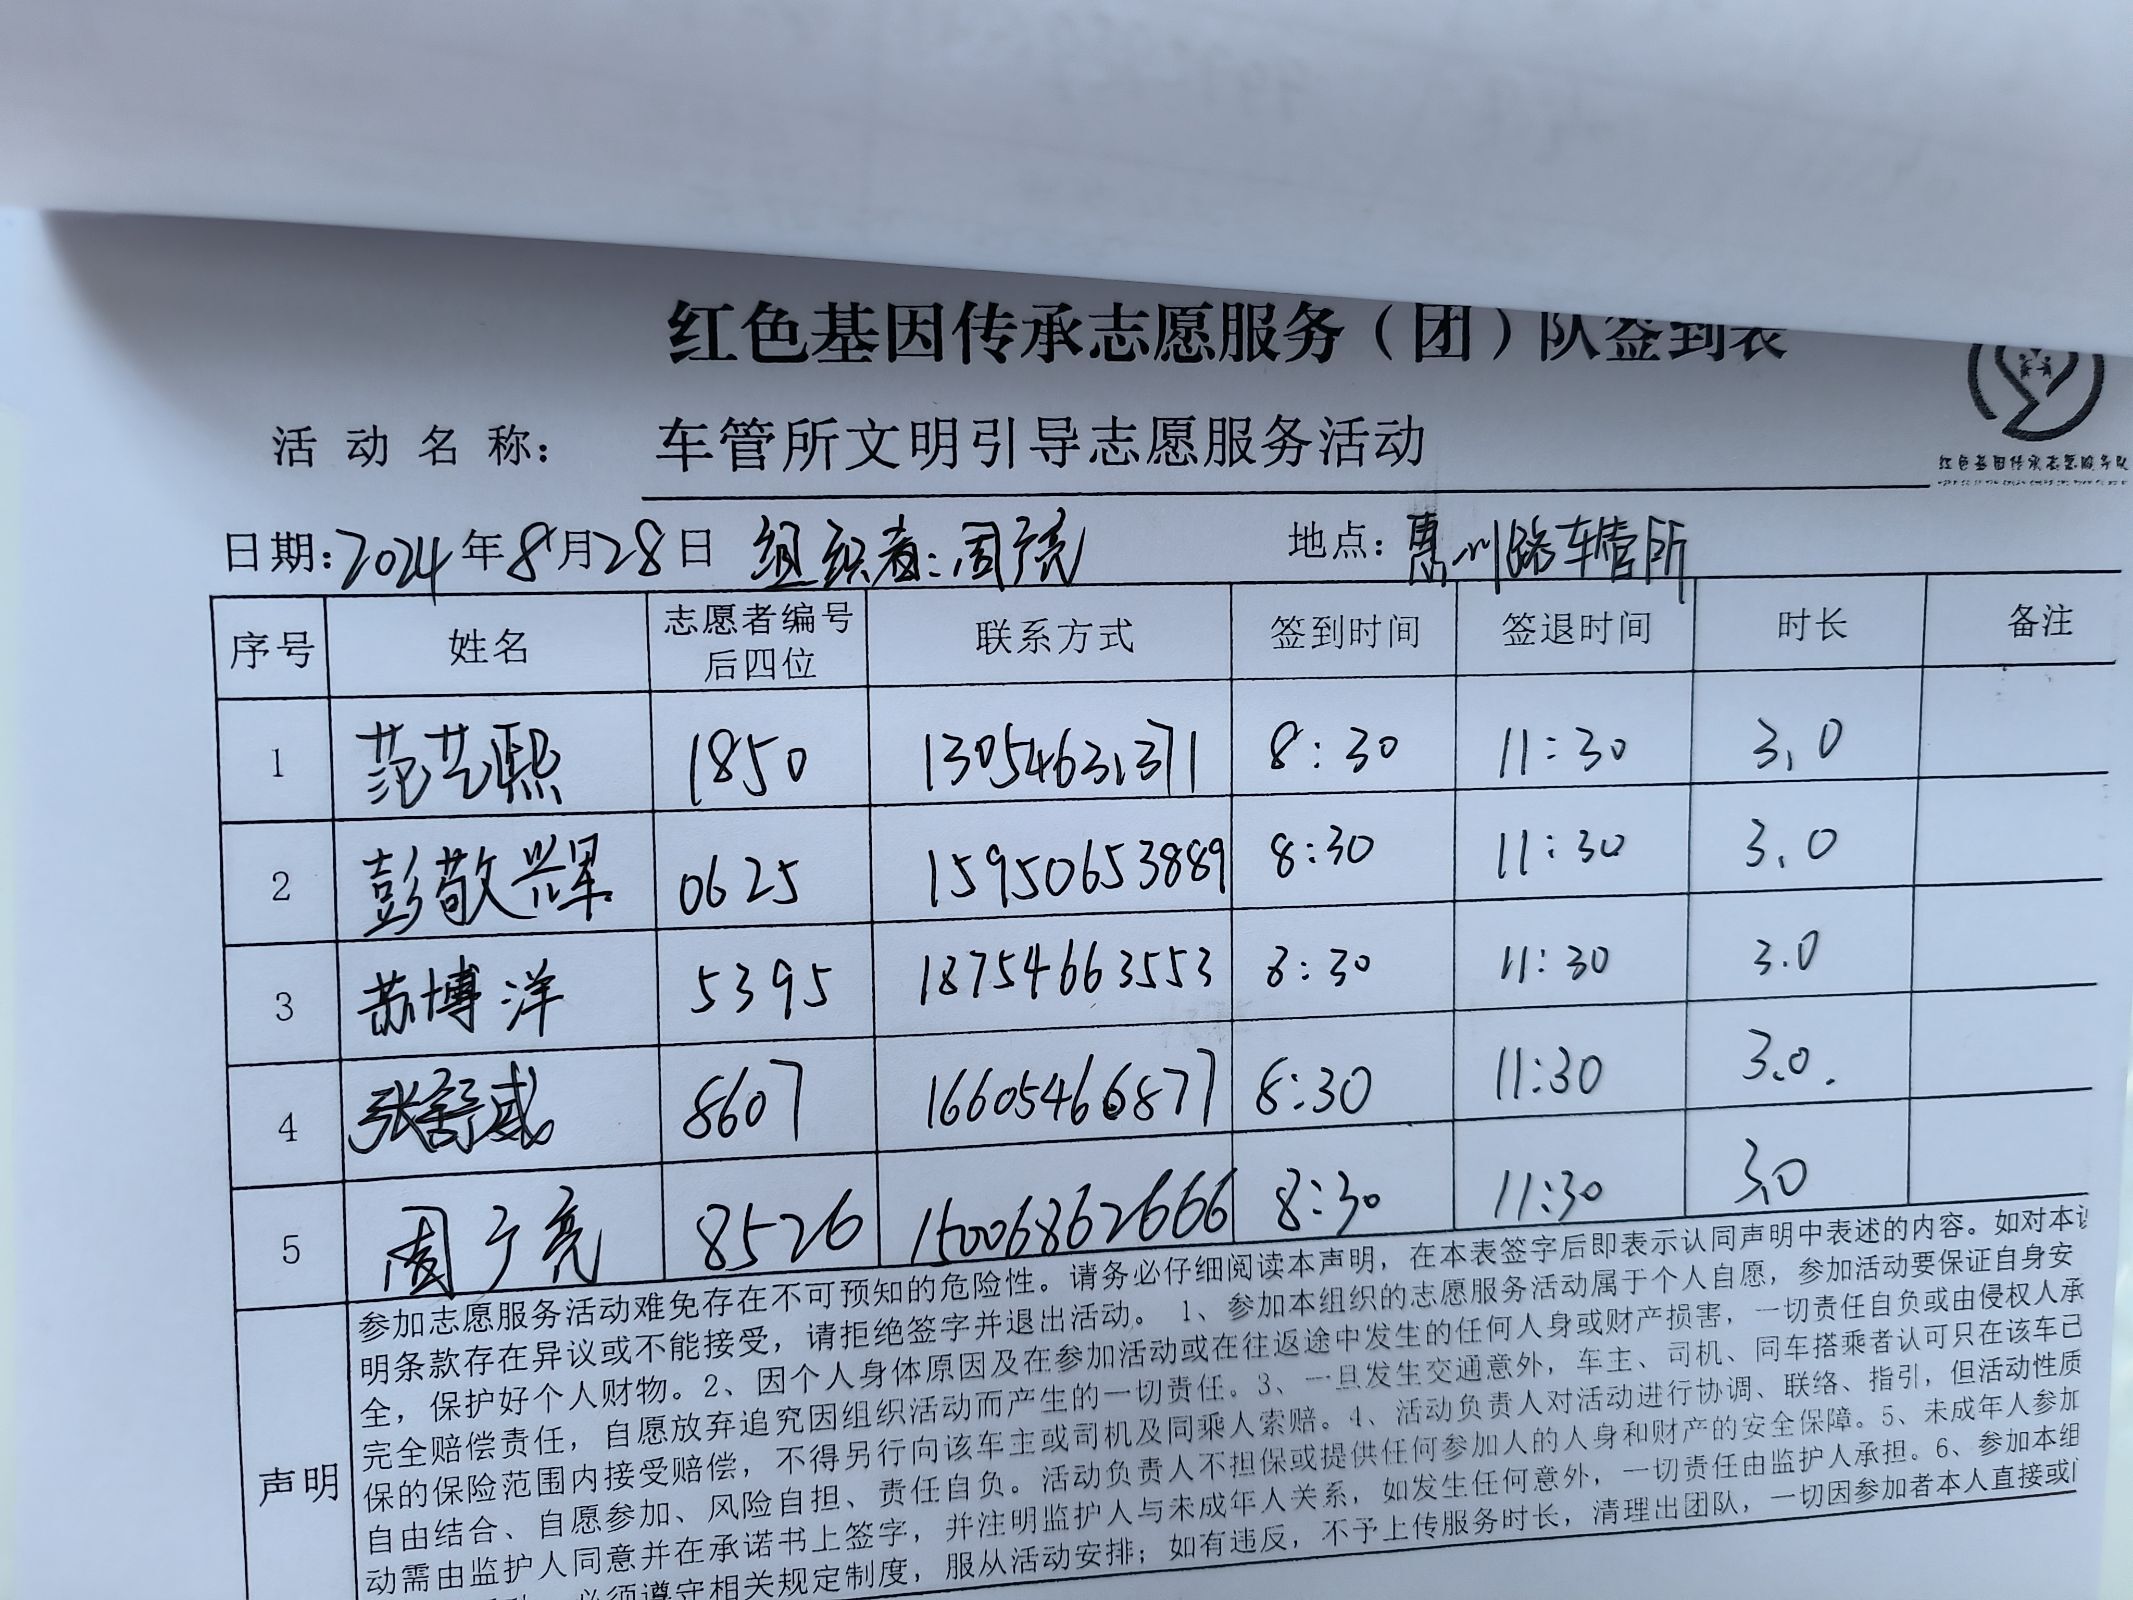 红色基因传承志愿服务（团）队签到表
红色基因传承志愿服务队
活动名称： 车管所文明引导志愿服务活动
日期：2024年8月28日 组织者：周广亮 地点：惠州路车管所
序号 姓名 志愿者编号后四位 联系方式 签到时间 签退时间 时长 备注
1 范艺熙 1850 13054631371 8:30 11:30 3.0
2 彭敬辉 0625 15950653889 8:30 11:30 3.0
3 苏博洋 5395 18754663553 8:30 11:30 3.0
4 张舒彧 8607 16605466877 8:30 11:30 3.0.
5 周广亮 8526 15006862666 8:30 11:30 3.0
声明
参加志愿服务活动难免存在不可预知的危险性。请务必仔细阅读本声明，在本表签字后即表示认同声明中表述的内容。如对本
明条款存在异议或不能接受，请拒绝签字并退出活动。1、参加本组织的志愿服务活动属于个人自愿，参加活动要保证自身安
全，保护好个人财物。2、因个人身体原因及在参加活动或在往返途中发生的任何人身或财产损害，一切责任自负或由侵权人承
完全赔偿责任，自愿放弃追究因组织活动而产生的一切责任。3、一旦发生交通意外，车主、司机、同车搭乘者认可只在该车已
保的保险范围内接受赔偿，不得另行向该车主或司机及同乘人索赔。4、活动负责人对活动进行协调、联络、指引，但活动性质
自由结合、自愿参加、风险自担、责任自负。活动负责人不担保或提供任何参加人的人身和财产的安全保障。5、未成年人参加
动需由监护人同意并在承诺书上签字，并注明监护人与未成年人关系，如发生任何意外，一切责任由监护人承担。6、参加本组
必须遵守相关规定制度，服从活动安排；如有违反，不予上传服务时长，清理出团队，一切因参加者本人直接或